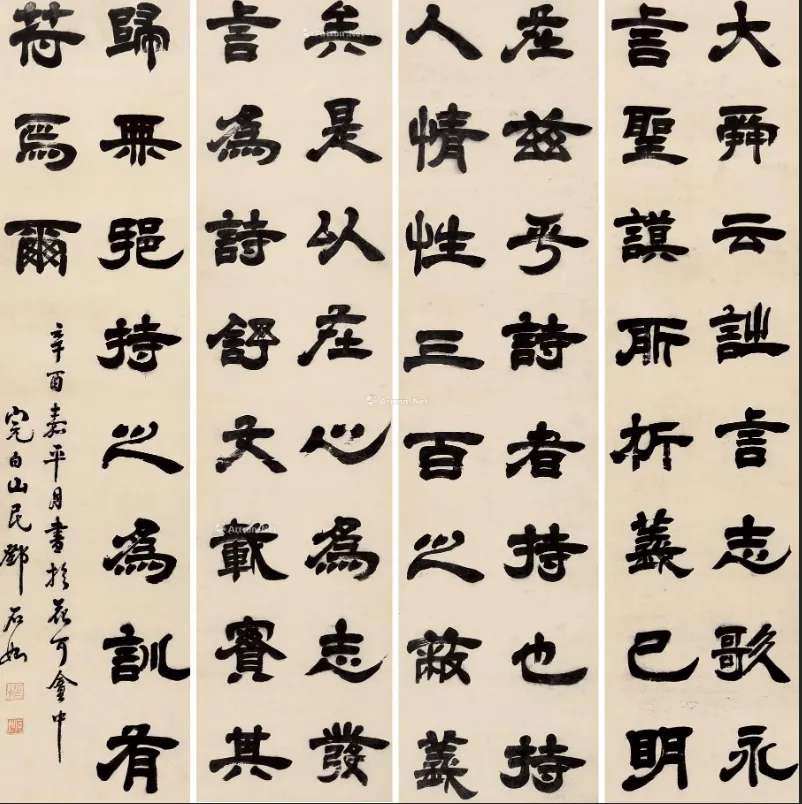 大舜云詩言志歌永
言聖謨所析義已明
在茲乎詩者持也持
人情性三百之蔽義
矣是以在心為志發
言為詩舒文載實其
歸無邪持之為訓有
苻焉爾
辛酉嘉平月書於花可龕中
完白山民鄧石如
Artron.Net
Artron.Net